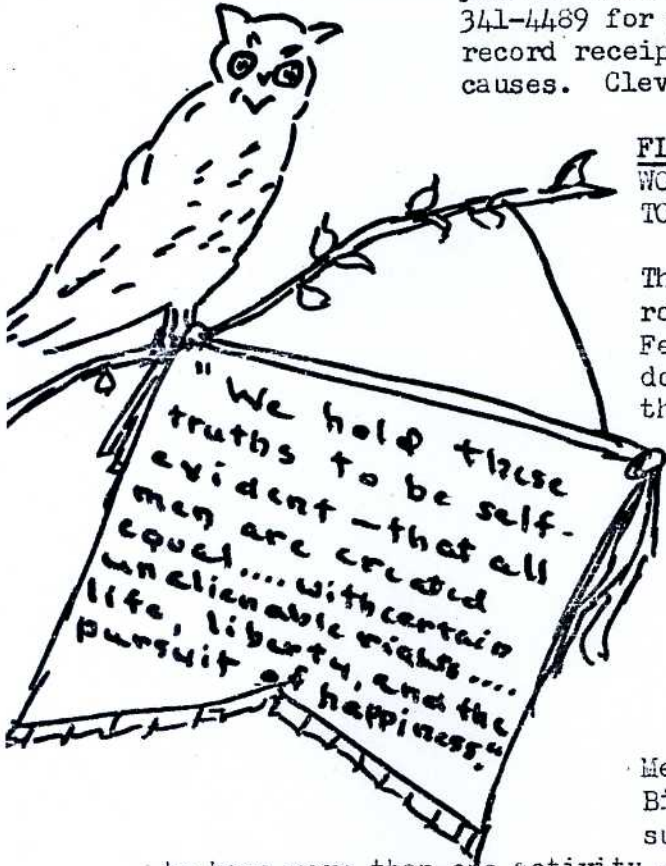 341-4489 for
record receip
causes. Clev
WO
TO
Th
ro
Fe
do
th
"We hold these
truths to be self-
evident — that all
men are created
equal.... with certain
unalienable rights....
life, liberty, and the
pursuit of happiness."
Me
Bi
su
than one activity